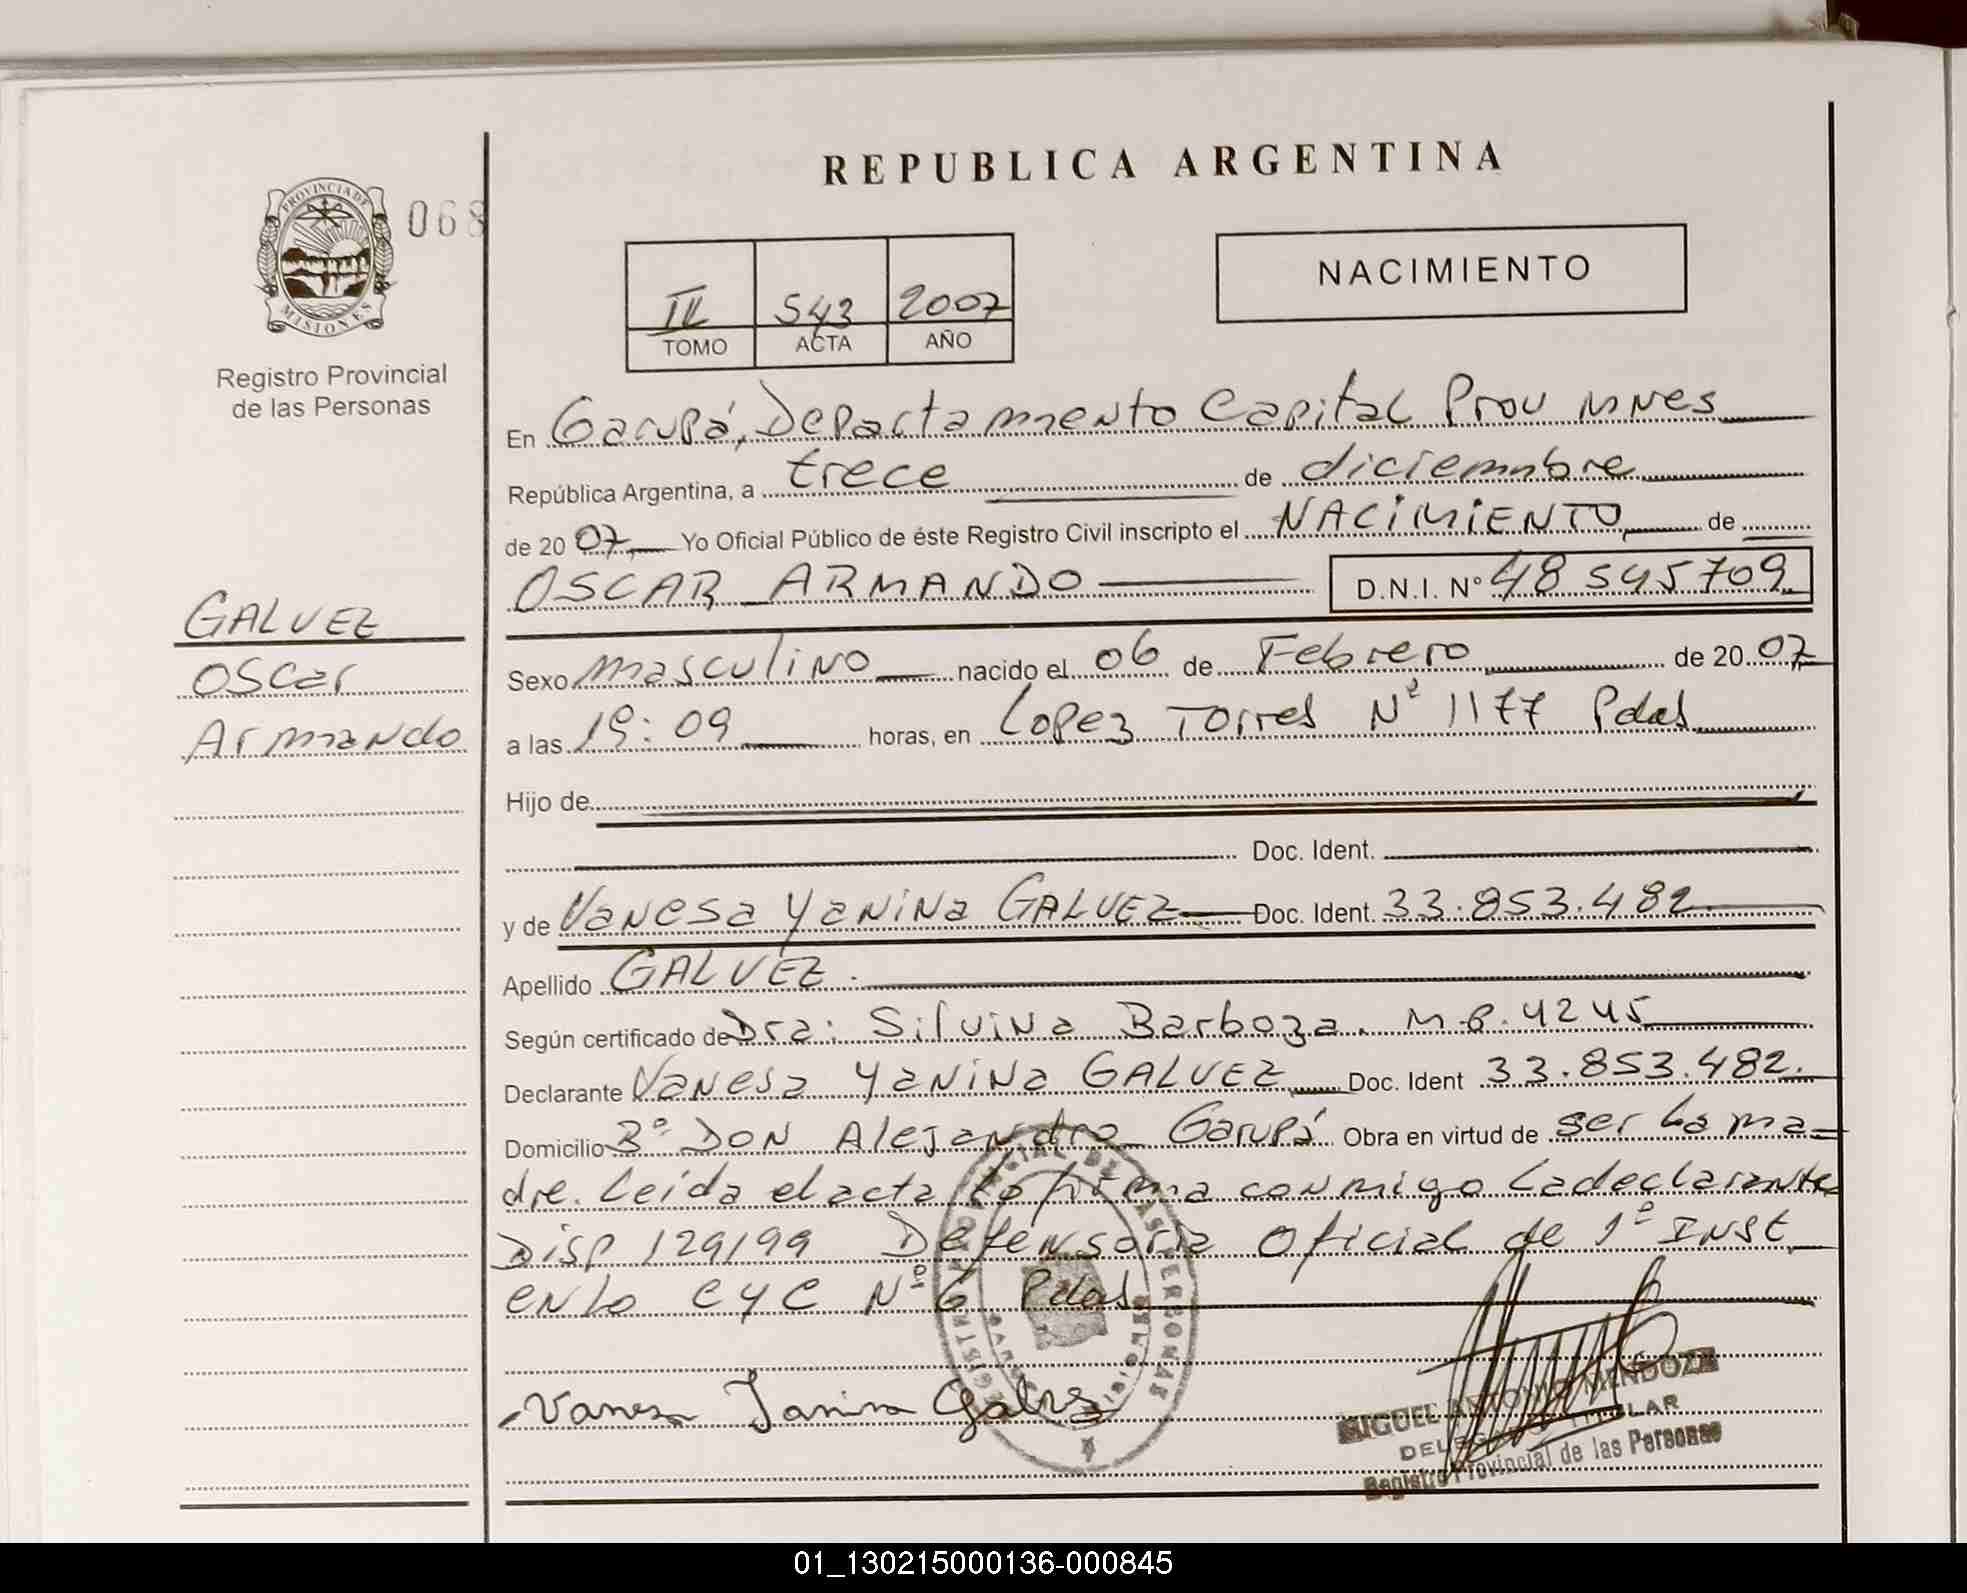 REPUBLICA ARGENTINA
PROVINCIA DE
MISIONES
068
Registro Provincial
de las Personas
543 2007
TOMO ACTA AÑO
NACIMIENTO
En Garupá, Departamento Capital Prov Mnes
República Argentina, a trece de diciembre
de 2007 Yo Oficial Público de éste Registro Civil inscripto el NACIMIENTO de
OSCAR ARMANDO D.N.I. Nº 48 545709
GALVEZ
Oscar
Armando
Sexo masculino nacido el 06 de Febrero de 2007
a las 19:09 horas, en Lopez Torres Nº 1177 Pdas
Hijo de
Doc. Ident.
y de Vanesa Yanina GALVEZ Doc. Ident. 33.853.482
Apellido GALVEZ.
Según certificado de Dra: Silvina Barboza. M.P. 4245
Declarante Vanesa Yanina GALVEZ Doc. Ident 33.853.482.
Domicilio Bº DON Alejandro Garupá Obra en virtud de ser la ma=
dre. Leida el acta la firma conmigo la declarante
Disp 129/99 Defensoria Oficial de 1º INST
en lo C y C Nº 6 Pdas.
Vanesa Janina Galvez
MIGUEL ANTONIO MENDOZA
DELEGADO TITULAR
Registro Provincial de las Personas
01_130215000136-000845